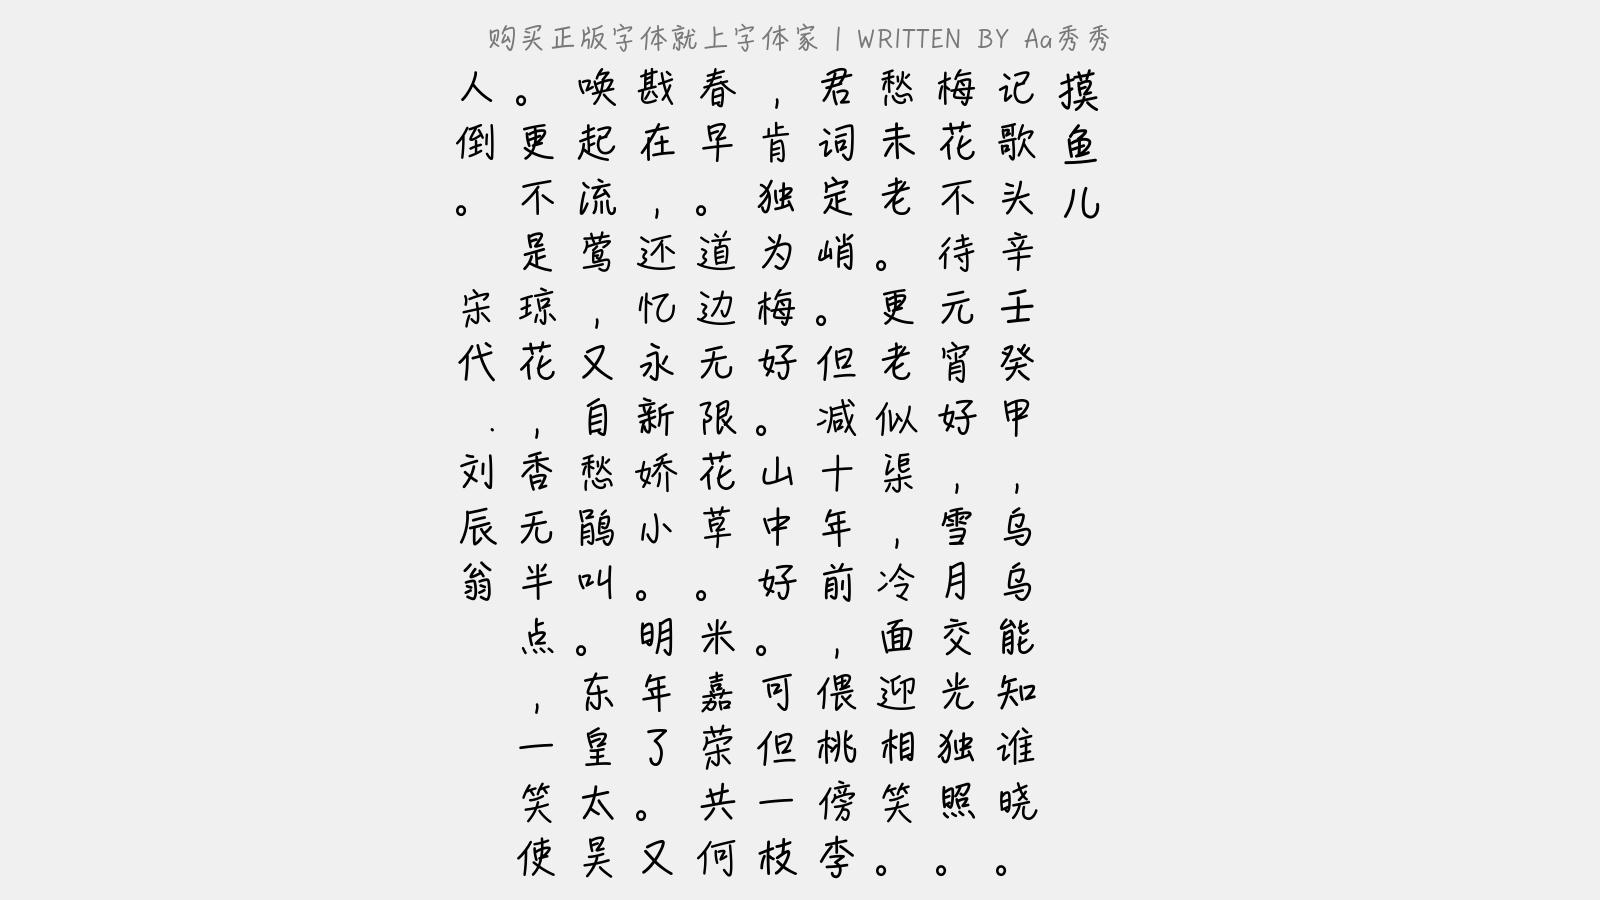 购买正版字体就上字体家 | WRITTEN BY Aa秀秀
摸鱼儿
记歌头辛壬癸甲，乌乌能知谁晓。
梅花不待元宵好，雪月交光独照。
愁未老。更老似渠，冷面迎相笑。
君词定峭。但减十年前，偎桃傍李
，肯独为梅好。山中好。可但一枝
春早。道边无限花草。米嘉荣共何
戡在，还忆永新娇小。明年了。又
唤起流莺，又自愁鹃叫。东皇太昊
。更不是琼花，香无半点，一笑使
人倒。
宋代·刘辰翁